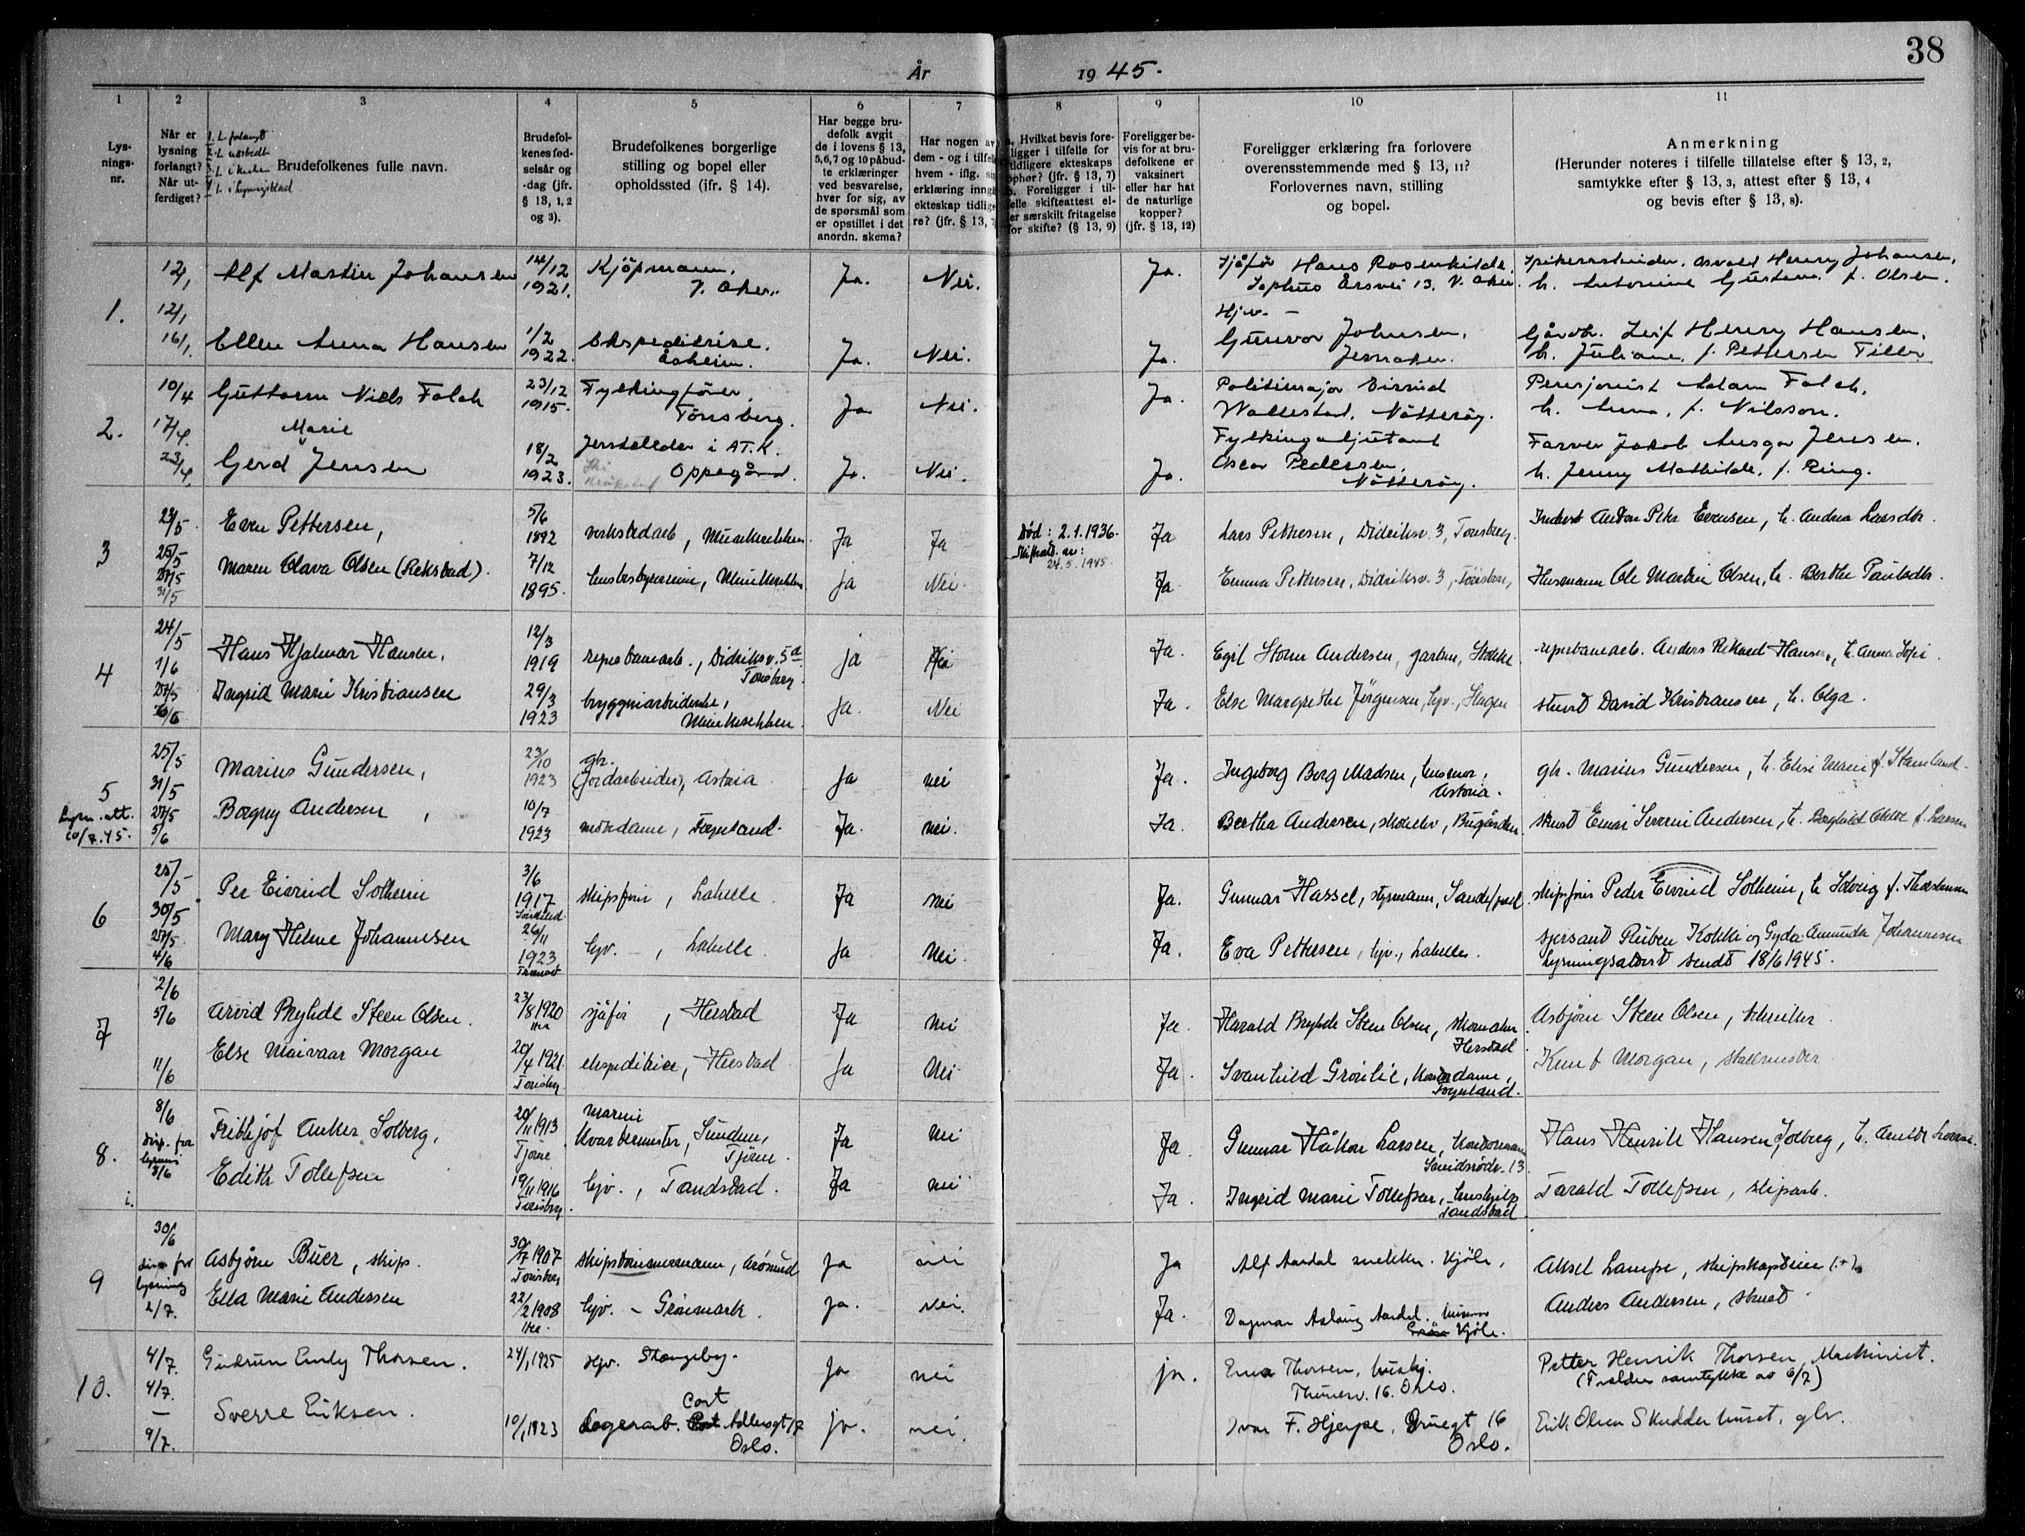 38
År 1945.
1
2
3
4
5
6
7
8
9
10
11
Lys-
nings-
nr.
Når er
lysning
forlangt?
Når ut-
ferdiget?
1. L. forlangt
Brudefolkenes fulle navn.
Brudefol-
kenes fød-
selsår og
-dag (jfr.
§ 13, 1, 2
og 3).
Brudefolkenes borgerlige
stilling og bopel eller
opholdssted (jfr. § 14).
Har begge bru-
defolk avgit
de i lovens § 13,
5,6,7 og 10 påbud-
te erklæringer
ved besvarelse,
hver for sig, av
de spørsmål som
er opstillet i det
anordn. skema?
Har nogen av
dem - og i tilfelle
hvem - iflg. sin
erklæring inngått
ekteskap tidlige-
re? (jfr. § 13, 7)
Hvilket bevis fore-
ligger i tilfelle for
tidligere ekteskaps
ophør? (jfr. § 13, 7)
b. Foreligger i til-
felle skifteattest el-
ler særskilt fritagelse
for skifte? (§ 13, 9)
Foreligger be-
vis for at bru-
defolkene er
vaksinert
eller har hat
de naturlige
kopper?
(jfr. § 13, 12)
Foreligger erklæring fra forlovere
overensstemmende med § 13, 11?
Forlovernes navn, stilling
og bopel.
Anmerkning
(Herunder noteres i tilfelle tillatelse efter § 13, 2,
samtykke efter § 13, 3, attest efter § 13, 4
og bevis efter § 13, 8).
1.
12/1
12/1
16/1.
Alf Martin Johansen
14/12
1921.
Kjöpmann,
V. Aker.
Ja.
Nei.
Ja.
Sjåfør Hans Rosenkilde,
Sophus Årsvei 13, V. Aker.
Osvald Henry Johansen,
h. Antonine Gustava f. Olsen.
Ellen Anna Hansen
1/2
1922.
Ekspeditrise,
Åsheim.
Ja.
Nei.
Ja.
Hjv. -
Gunvor Johnsen,
Jernaker.
Gårdbr. Leif Henry Hansen,
h. Juliane, f. Pettersen
2.
10/4
17/4.
23/4.
Guttorm Niels Falck
23/12
1915.
Fylkingfører,
Tønsberg.
Ja
Nei.
Ja.
Politimajor Eivind
Wallestad, Nötteröy.
Pensjonist Adam Falck,
h. Anna, f. Nilsson.
Marie
Gerd Jensen
18/2
1923.
i AT.K.
Oppegård.
Ja.
Nei.
Ja.
Fylkingadjutant
Oscar Pedersen,
Nötteröy.
Farver Jakob Ansgar Jensen,
h. Jenny Mathilde, f. Ring.
3
24/5
25/5
27/5
31/5
Even Pettersen,
5/6
1892
verkstedarb, Munkerekken.
Ja
Ja
Død: 2.1.1936.
Skifteatt. av:
24.5.1945
Ja
Lars Pettersen, Didriksv. 3, Tønsberg
Anton Petter Evensen, h. Andrea Larsdtr.
Maren Olava Olsen (Rekstad).
7/12
1895.
husbestyrerinne, Munkerekken
Ja
Nei.
Ja
Emma Pettersen, Didriksv. 3, Tönsberg,
Husmann Ole Martin Olsen, h. Berthe Paulsdtr.
4
24/5
1/6
27/5
10/6
Hans Hjalmar Hansen,
12/3
1919
repslanearb., Didriksv. 5d
Tønsberg.
ja
Nei
Ja.
Egil Storm Andersen, gartner, Stokke
reperbanearb. Anders Rikard Hansen, h. Anna Sofi
Ingrid Marie Kristiansen
29/3
1923
bryggeriarbeiderske,
Munkerekken.
ja.
Nei
Ja.
Else Margrethe Jörgensen, hjv., Slagen
stuert David Kristiansen, h. Olga.
5
Lysn.att.
20/7.45.
25/5
31/5
27/5
5/6
Marius Gundersen,
23/10
1923
gbr.
(Jordarbeider), Astoria
Ja
nei
Ja.
Ingeborg Borg Madsen, husmor,
Astoria.
gbr. Marius Gundersen, h. Elise Marie f. Stamland
Borgny Andersen,
10/7
1923
motedame, Fagerland.
Ja.
nei.
Ja.
Bertha Andersen, skoleelev, Bugården
stuert Einar Severin Andersen, h. Borghild Othilie f. Larsen
6
25/5
30/5
27/5
4/6
Per Eivind Solheim
3/6
1917
skipsfører, Labelle
Ja
nei
Ja.
Gunnar Hassel, styrmann, Sandefjord
skipsfører Peder Eivind Solheim, h. Solveig f. Thorstensen
Mary Helene Johannesen
26/11
1923
hjv. , Labelle
Ja
Nei.
Ja.
Eva Pettersen, hjv., Labelle.
Ruben Kokki og Gyda Amunda Johannesen
Lysningsattest sendt 18/6 1945.
7
2/6
5/6
11/6
Arvid Bryhde Steen Olsen.
23/8 1920
sjåfør, Herstad
Ja
nei
Ja
Harald Bryhde Steen Olsen, skomaker
Herstad
Asbjørn Steen Olsen, snekker
Else Maivaar Morgan
20/4 1921
Tønsberg
ekspeditrice, Herstad
Ja
Nei.
Ja.
Svanhild Grönlie, kontordame,
Fagerland.
Knut Morgan, stallmester
8.
i.
8/6
Disp. for
lysning
8/6
Frithjof Anker Solberg,
20/11 1913
Tjöme
Marine
kvartermester, Sundene,
Tjöme.
Ja
nei
Ja
Gunnar Håkon Larsen, kontormann
Smidsrødv. 13
Hans Henrik Hansen Solberg,
Edith Tollefsen
19/11 1916
Tønsberg
hjv. , Tandstad.
Ja
nei
Ja.
Ingrid Marie Tollefsen, hushjelp
Tandstad
Tarald Tollefsen, skiparb.
9
30/6
disp for
lysning
2/7.
Asbjørn Buer, skips.
30/7 1907
Tønsberg
skipstømmermann, Årøsund
Ja
nei
Ja
Alf Aardal snekker. Kjöle,
Aksel Lampe, skipskaptein (+).
Ella Marie Andersen
22/2 1908
hjv. - Grönmark.
Ja.
Nei.
Ja.
Dagmar Aslaug Aardal.
Kjöle.
Anders Andersen, stuert
10.
4/7.
4/7.
—
9/7.
Gudrun Emly Thorsen.
24/1 1925
Hjv. Stangeby.
Ja
nei
ja.
Erna Thorsen, hushj.
Thunesv. 16. Oslo.
Petter Henrik Thorsen, Maskinist.
(Foreldre samtykke av 6/7)
Sverre Eriksen.
10/1 1823
Cort
Lagerarb. Adlersgt 17
Oslo.
ja.
nei.
Ivar F. Hjerpe, Gruegt 16
Oslo.
Erik Olsen Skudderhuset, gbr.